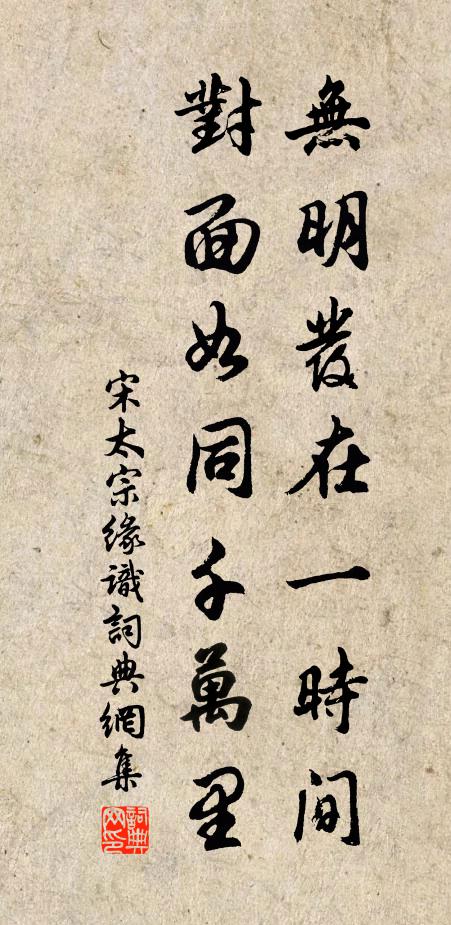 無明發在一時間
對面如同千萬里
宋太宗緣識詞典網集
詞典網印